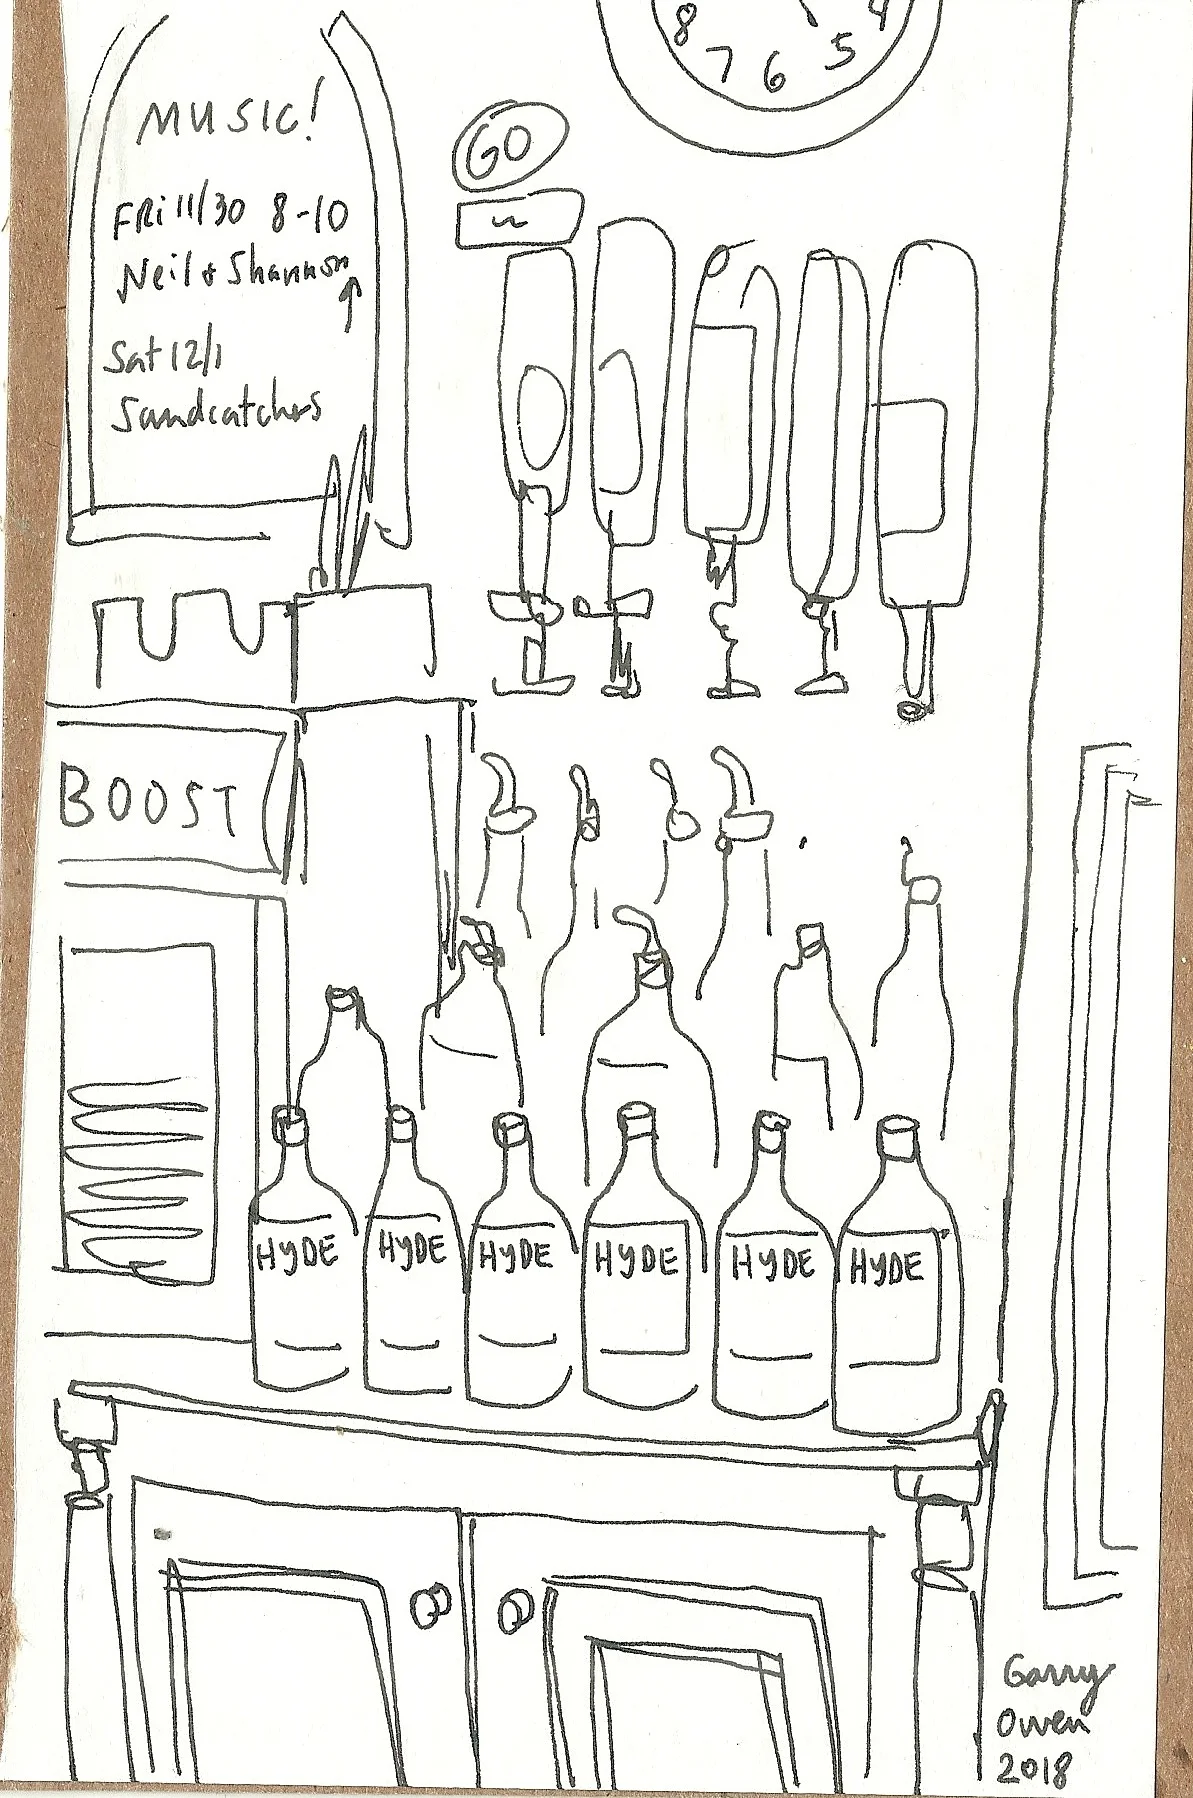 8 7 6 5 4
MUSIC!
GO
FRi 11/30 8-10
Neil & Shannon
Sat 12/1
Sandcatchers
BOOST
HYDE HYDE HYDE HYDE HYDE HYDE
Garry
Owen
2018